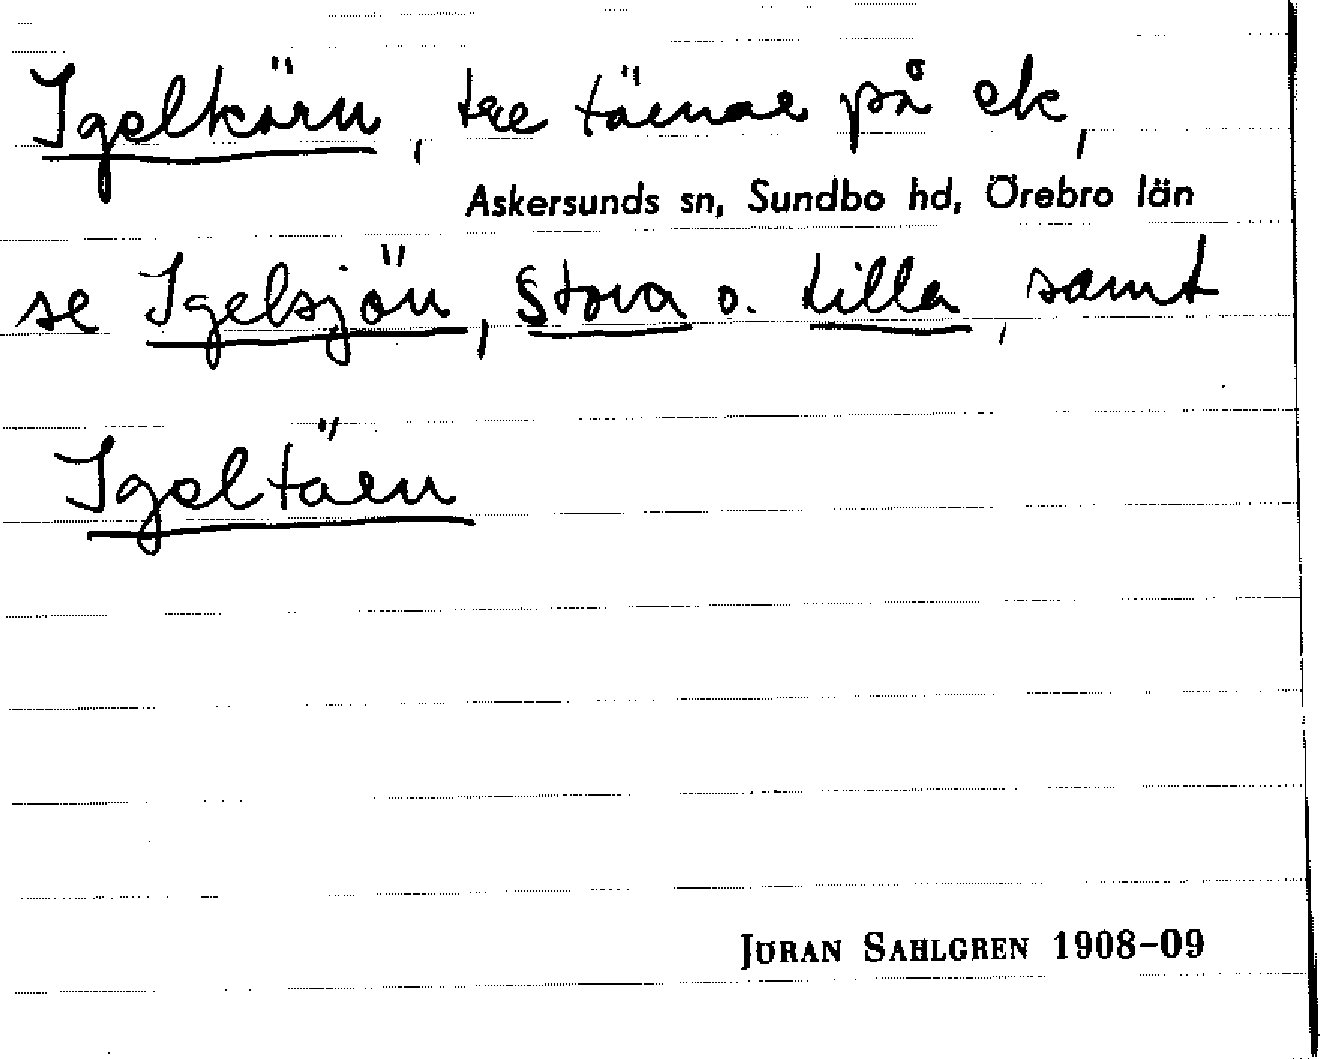 Igelkärn, tre tärnar på ek,
Askersunds sn, Sundbo hd, Örebro län
se Igelsjön, Stora o. Lilla, samt
Igeltärn
JÖRAN SAHLGREN 1908-09